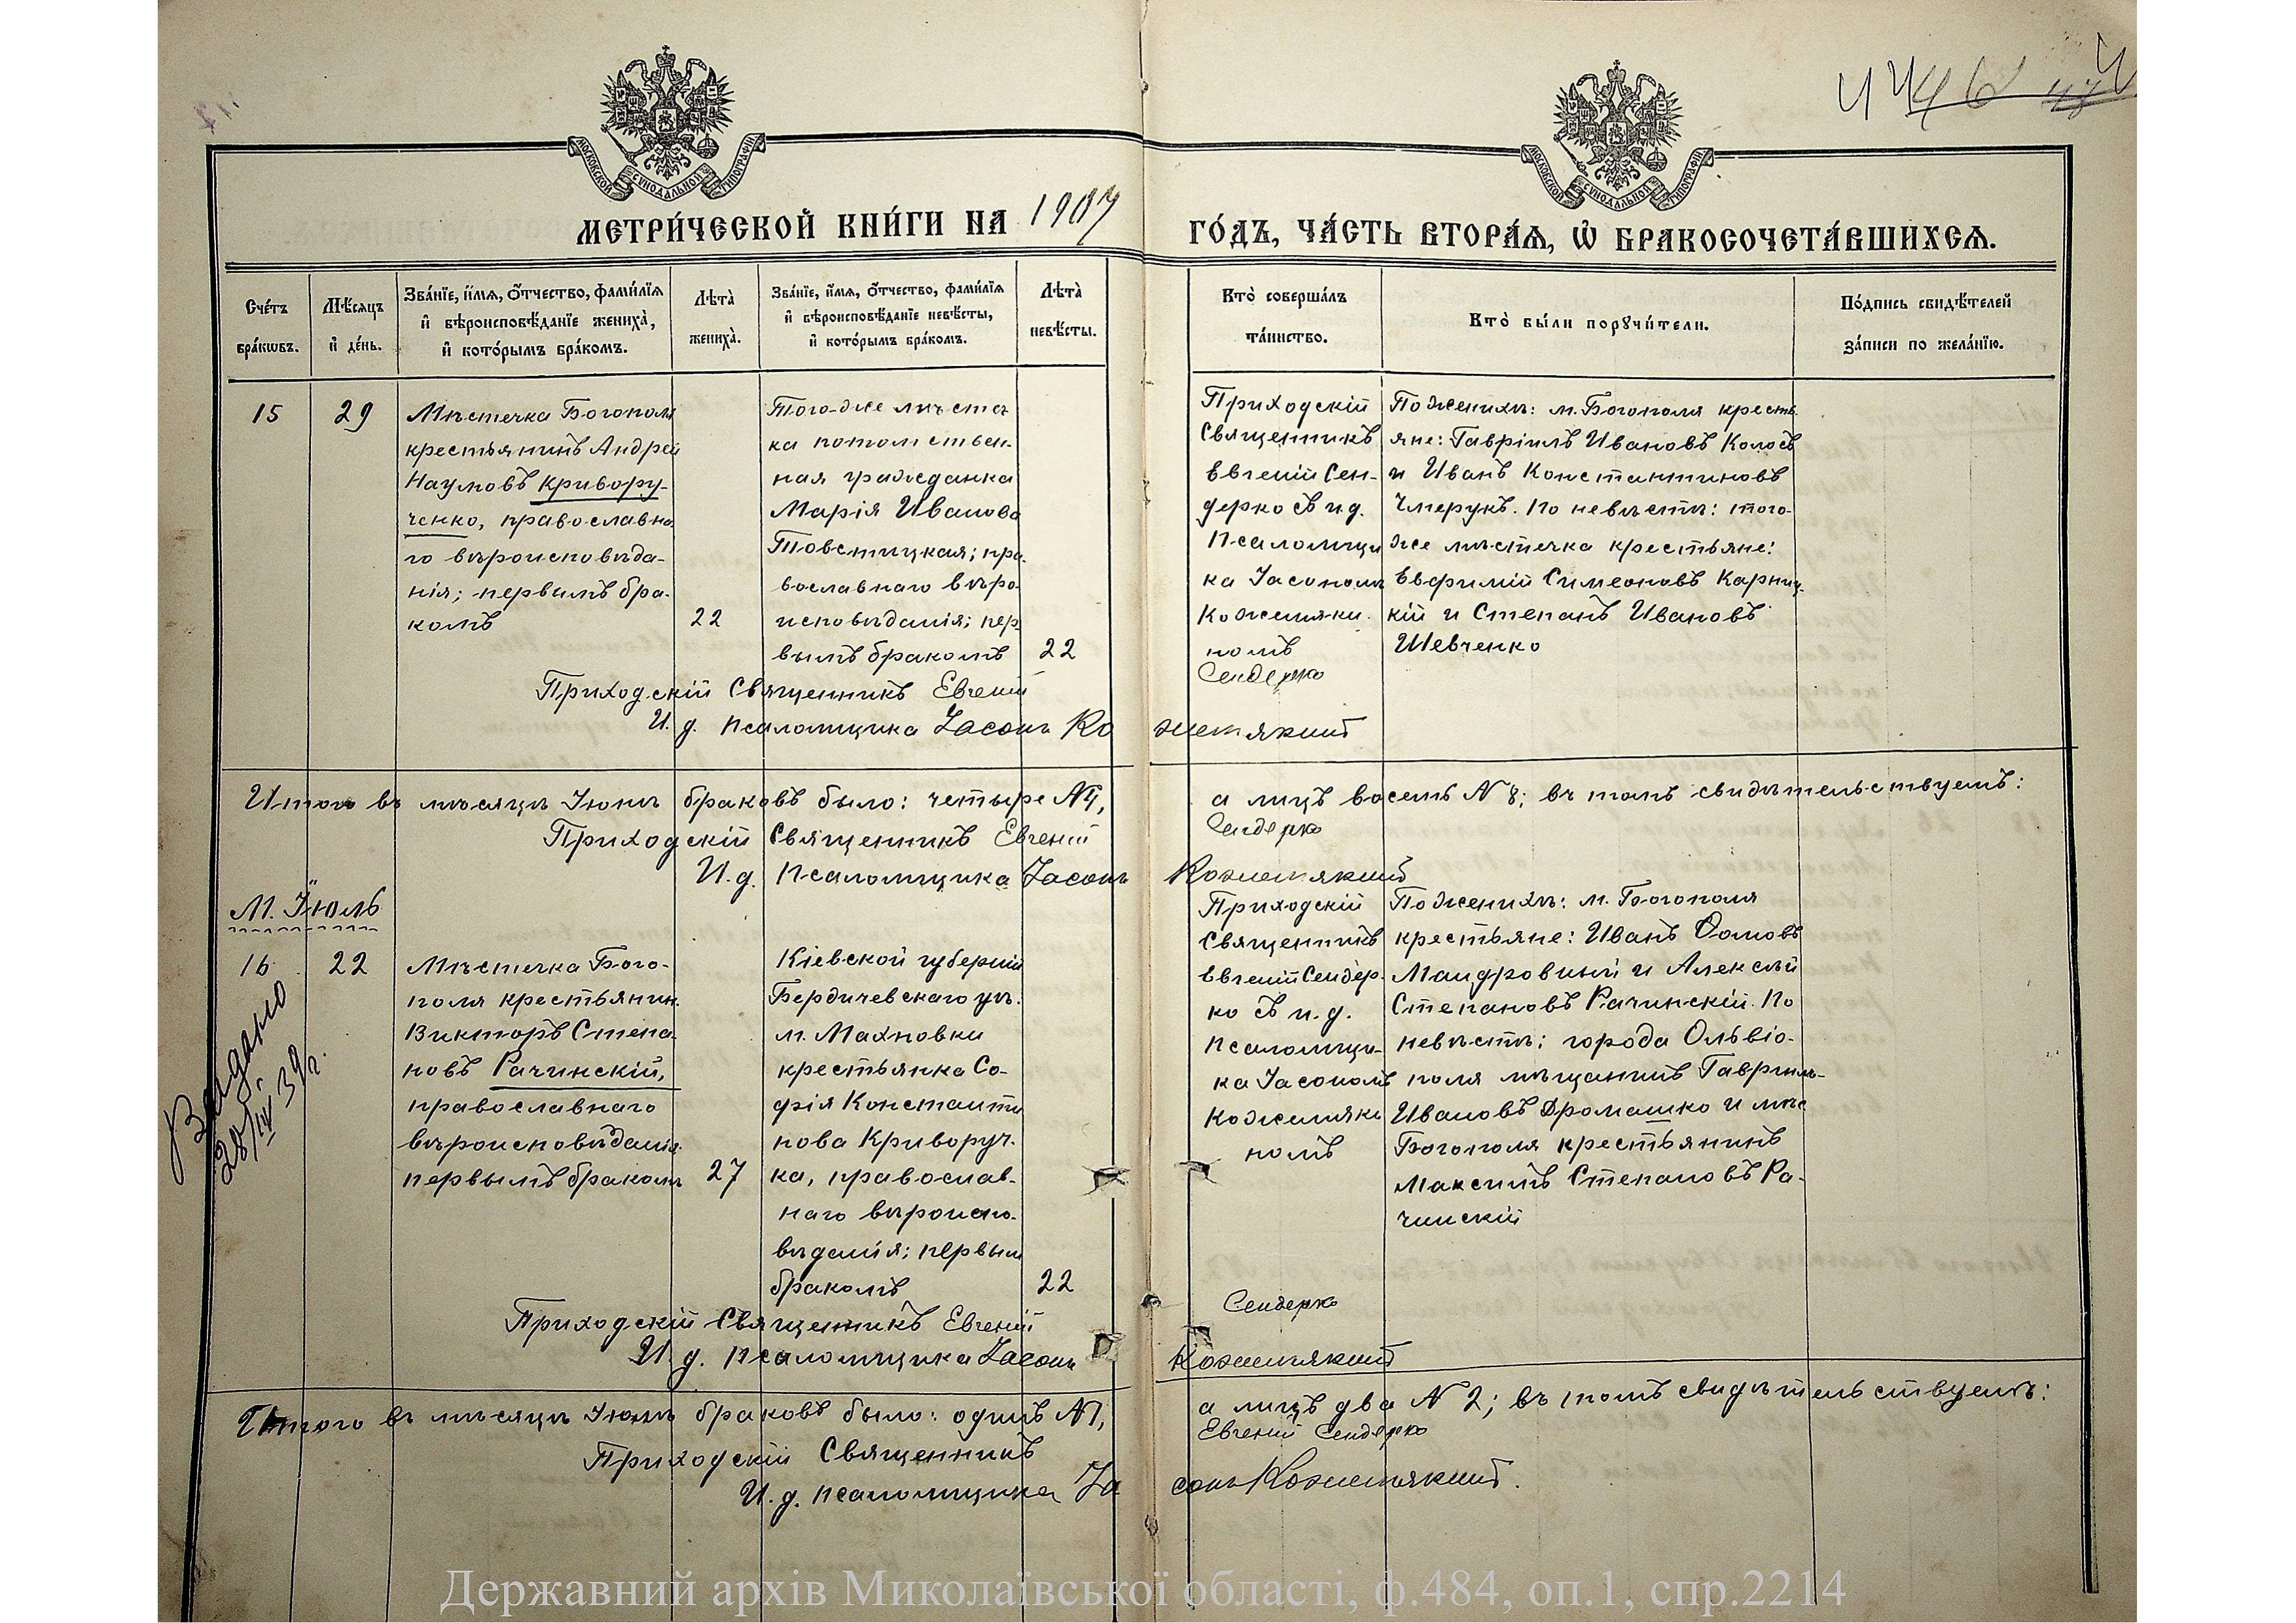 МОСКОВСКОЙ СѴНОДАЛЬНОЙ ТИПОГРАФІИ
МОСКОВСКОЙ СѴНОДАЛЬНОЙ ТИПОГРАФІИ
МЕТРИ́ЧЕСКОЙ КНИ́ГИ НА 1907
ГО́ДЪ, ЧА́СТЬ ВТОРА́Я, Ѡ҆ БРАКОСОЧЕТА́ВШИХСѦ.
Сче́тъ бра́кѡвъ.
Мѣ́сяцъ и҆ де́нь.
Зва́нїе, и҆́мѧ, ѻ҆́тчество, фами́лїѧ
и҆ вѣроисповѣ́данїе жениха̀,
и҆ кото́рымъ бра́комъ.
Лѣта̀ жениха̀.
Зва́нїе, и҆́мѧ, ѻ҆́тчество, фами́лїѧ
и҆ вѣроисповѣ́данїе невѣ́сты,
и҆ кото́рымъ бра́комъ.
Лѣта̀ невѣ́сты.
Кто̀ соверша́лъ та́инство.
Кто̀ бы́ли порꙋчи́тели.
По́дпись свидѣ́телей
за́писи по жела́нїю.
15
29
Мѣстечка Богополя
крестьянинъ Андрей
Наумовъ Кривору-
ченко, православна
го вѣроисповѣда-
нія; первымъ бра-
комъ
22
Того-же мѣстеч
ка потомствен-
ная гражданка
Марія Иванова
Товстицкая; пра-
вославнаго вѣро
исповѣданія; пер
вымъ бракомъ
22
Приходскій
Священникъ
Евгеній Сен-
дерко съ и.д.
Псаломщи
ка Іасономъ
Кожемяки-
номъ
По женихѣ: м. Богополя кресть
яне: Гавріилъ Ивановъ Колосъ
и Иванъ Константиновъ
Чмерукъ. По невѣстѣ: того-
же мѣстечка крестьяне:
Евфимій Симеоновъ Карниц-
кій и Степанъ Ивановъ
Шевченко
Приходскій Священникъ Евгеній Сендерко
И. д. псаломщика Іасонъ Кожемякинъ
Итого въ мѣсяцѣ Іюнѣ браковъ было: четыре №4, а лицъ восемь № 8; въ томъ свидѣтельствуемъ:
Приходскій Священникъ Евгеній Сендерко
И. д. Псаломщика Іасонъ Кожемякинъ
М. Іюль
16
22
Мѣстечка Бого-
поля крестьянин
Викторъ Степа-
новъ Рачинскій,
православнаго
вѣроисповѣданія
первымъ бракомъ
27
Кіевской губерніи
Бердичевскаго уѣ.
м. Махновки
крестьянка Со-
фія Константи
нова Криворуч-
ка, православ-
наго вѣроиспо-
вѣданія; первым
бракомъ
22
Приходскій
Священникъ
Евгеній Сендер-
ко съ и. д.
псаломщи-
ка Іасономъ
Кожемяки
номъ
По женихѣ: м. Богополя
крестьяне: Иванъ Ѳомовъ
Мандровный и Алексѣй
Степановъ Рачинскій. По
невѣстѣ: города Ольвіо-
поля мѣщанинъ Гавріилъ
Ивановъ Дромашко и мѣс
Богополя крестьянинъ
Максимъ Степановъ Ра-
чинскій
Выдано
28/IV 39 г.
Приходскій Священникъ Евгеній Сендерко
И. д. псаломщика Іасонъ Кожемякинъ
Итого въ мѣсяцѣ Іюлѣ браковъ было: одинъ №1, а лицъ два № 2; въ томъ свидѣтельствуемъ:
Приходскій Священникъ Евгеній Сендерко
И. д. псаломщика Іасонъ Кожемякинъ.
Державний архів Миколаївської області, ф.484, оп.1, спр.2214